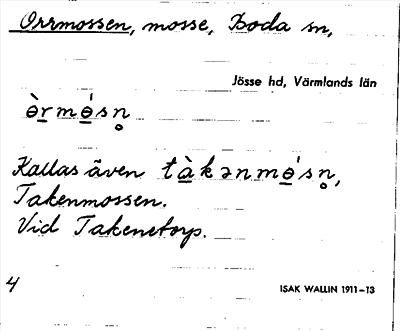 Orrmossen, mosse, Boda sn,
Jösse hd, Värmlands län
ɵ̀rmɵ́sn̥
Kallas även tàkənmɵ́sn̥,
Takenmossen.
Vid Takenetorp.
4
ISAK WALLIN 1911–13